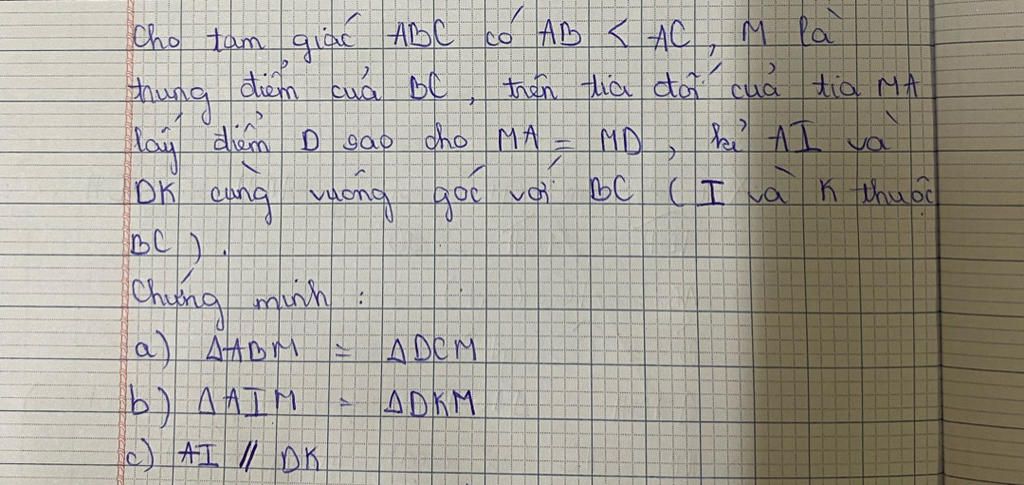 Cho tam giác ABC có AB < AC, M là
trung điểm của BC, trên tia đối của tia MA
lấy điểm D sao cho MA = MD, kẻ AI và
DK cùng vuông góc với BC (I và K thuộc
BC).
Chứng minh :
a) ΔABM = ΔDCM
b) ΔAIM = ΔDKM
c) AI // DK